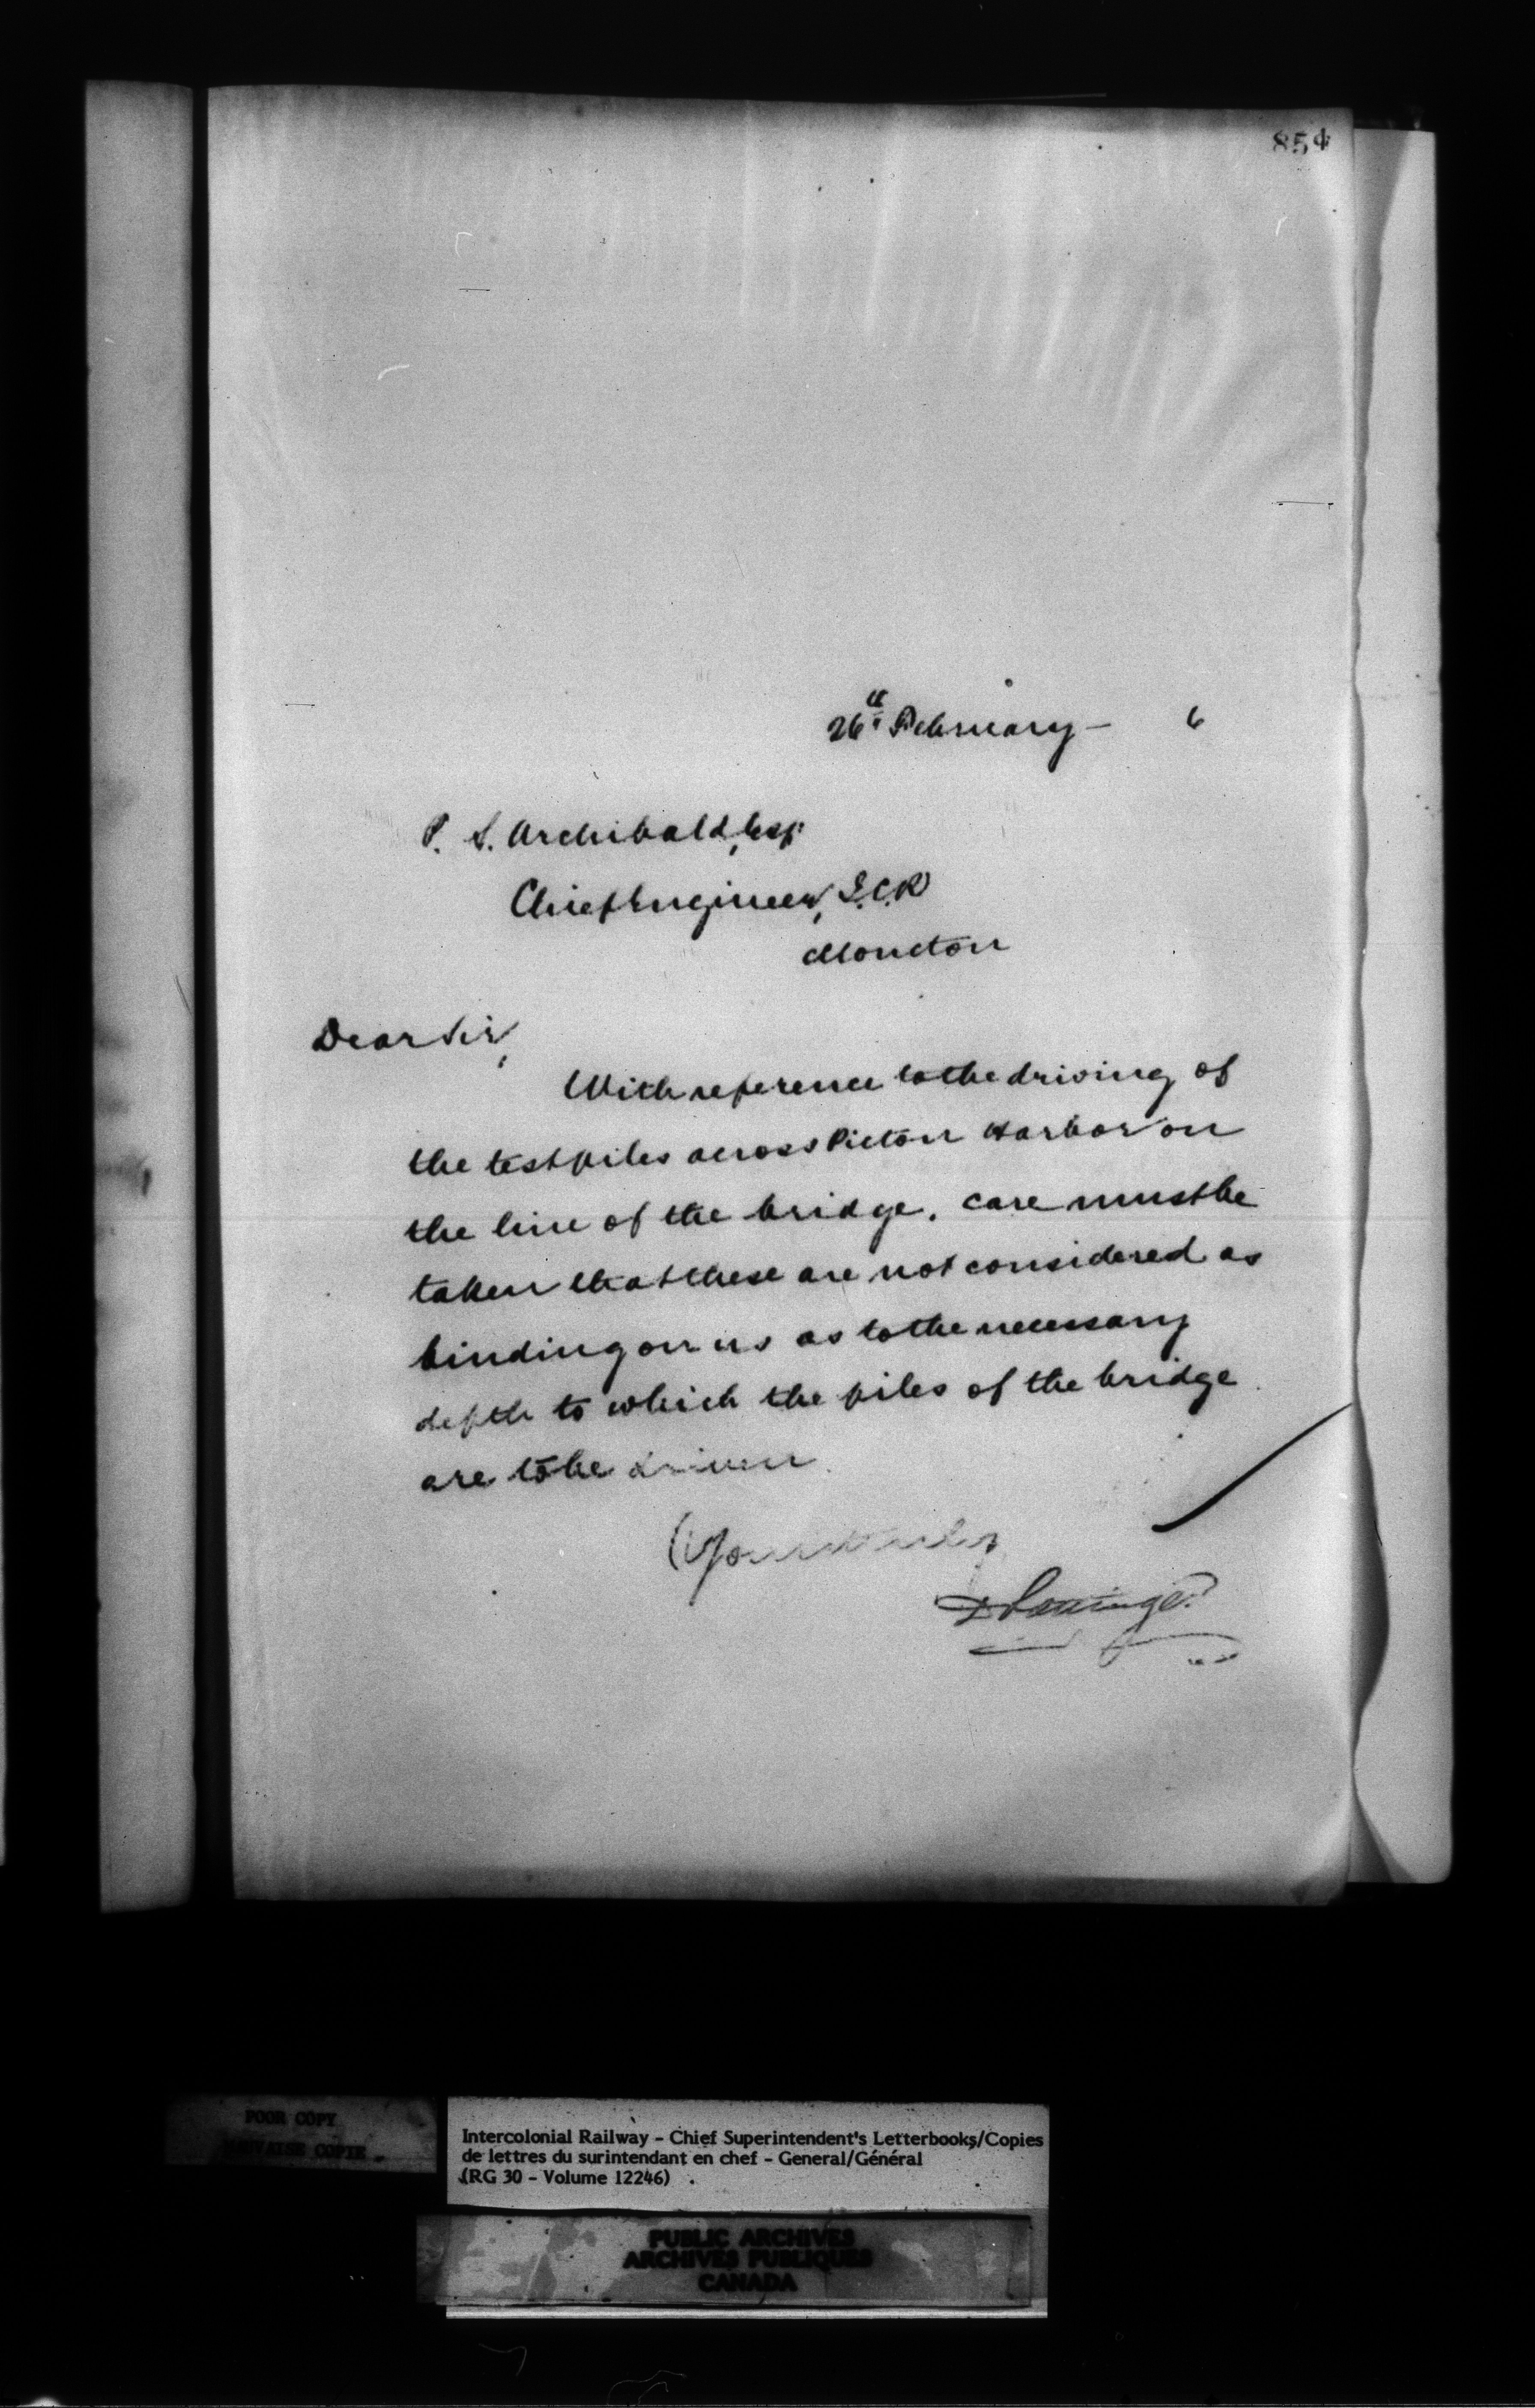 854
26th February – 6
P. S. Archibald, Esq.
Chief Engineer, I.C.R
Moncton
Dear Sir,
With reference to the driving of
the test piles across Pictou Harbor on
the line of the bridge. care must be
taken that these are not considered as
binding on us as to the necessary
depth to which the piles of the bridge
are to be driven.
Yours truly
D Pottinger
POOR COPY
MAUVAISE COPIE
Intercolonial Railway – Chief Superintendent's Letterbooks/Copies
de lettres du surintendant en chef – General/Général
(RG 30 – Volume 12246)
PUBLIC ARCHIVES
ARCHIVES PUBLIQUES
CANADA